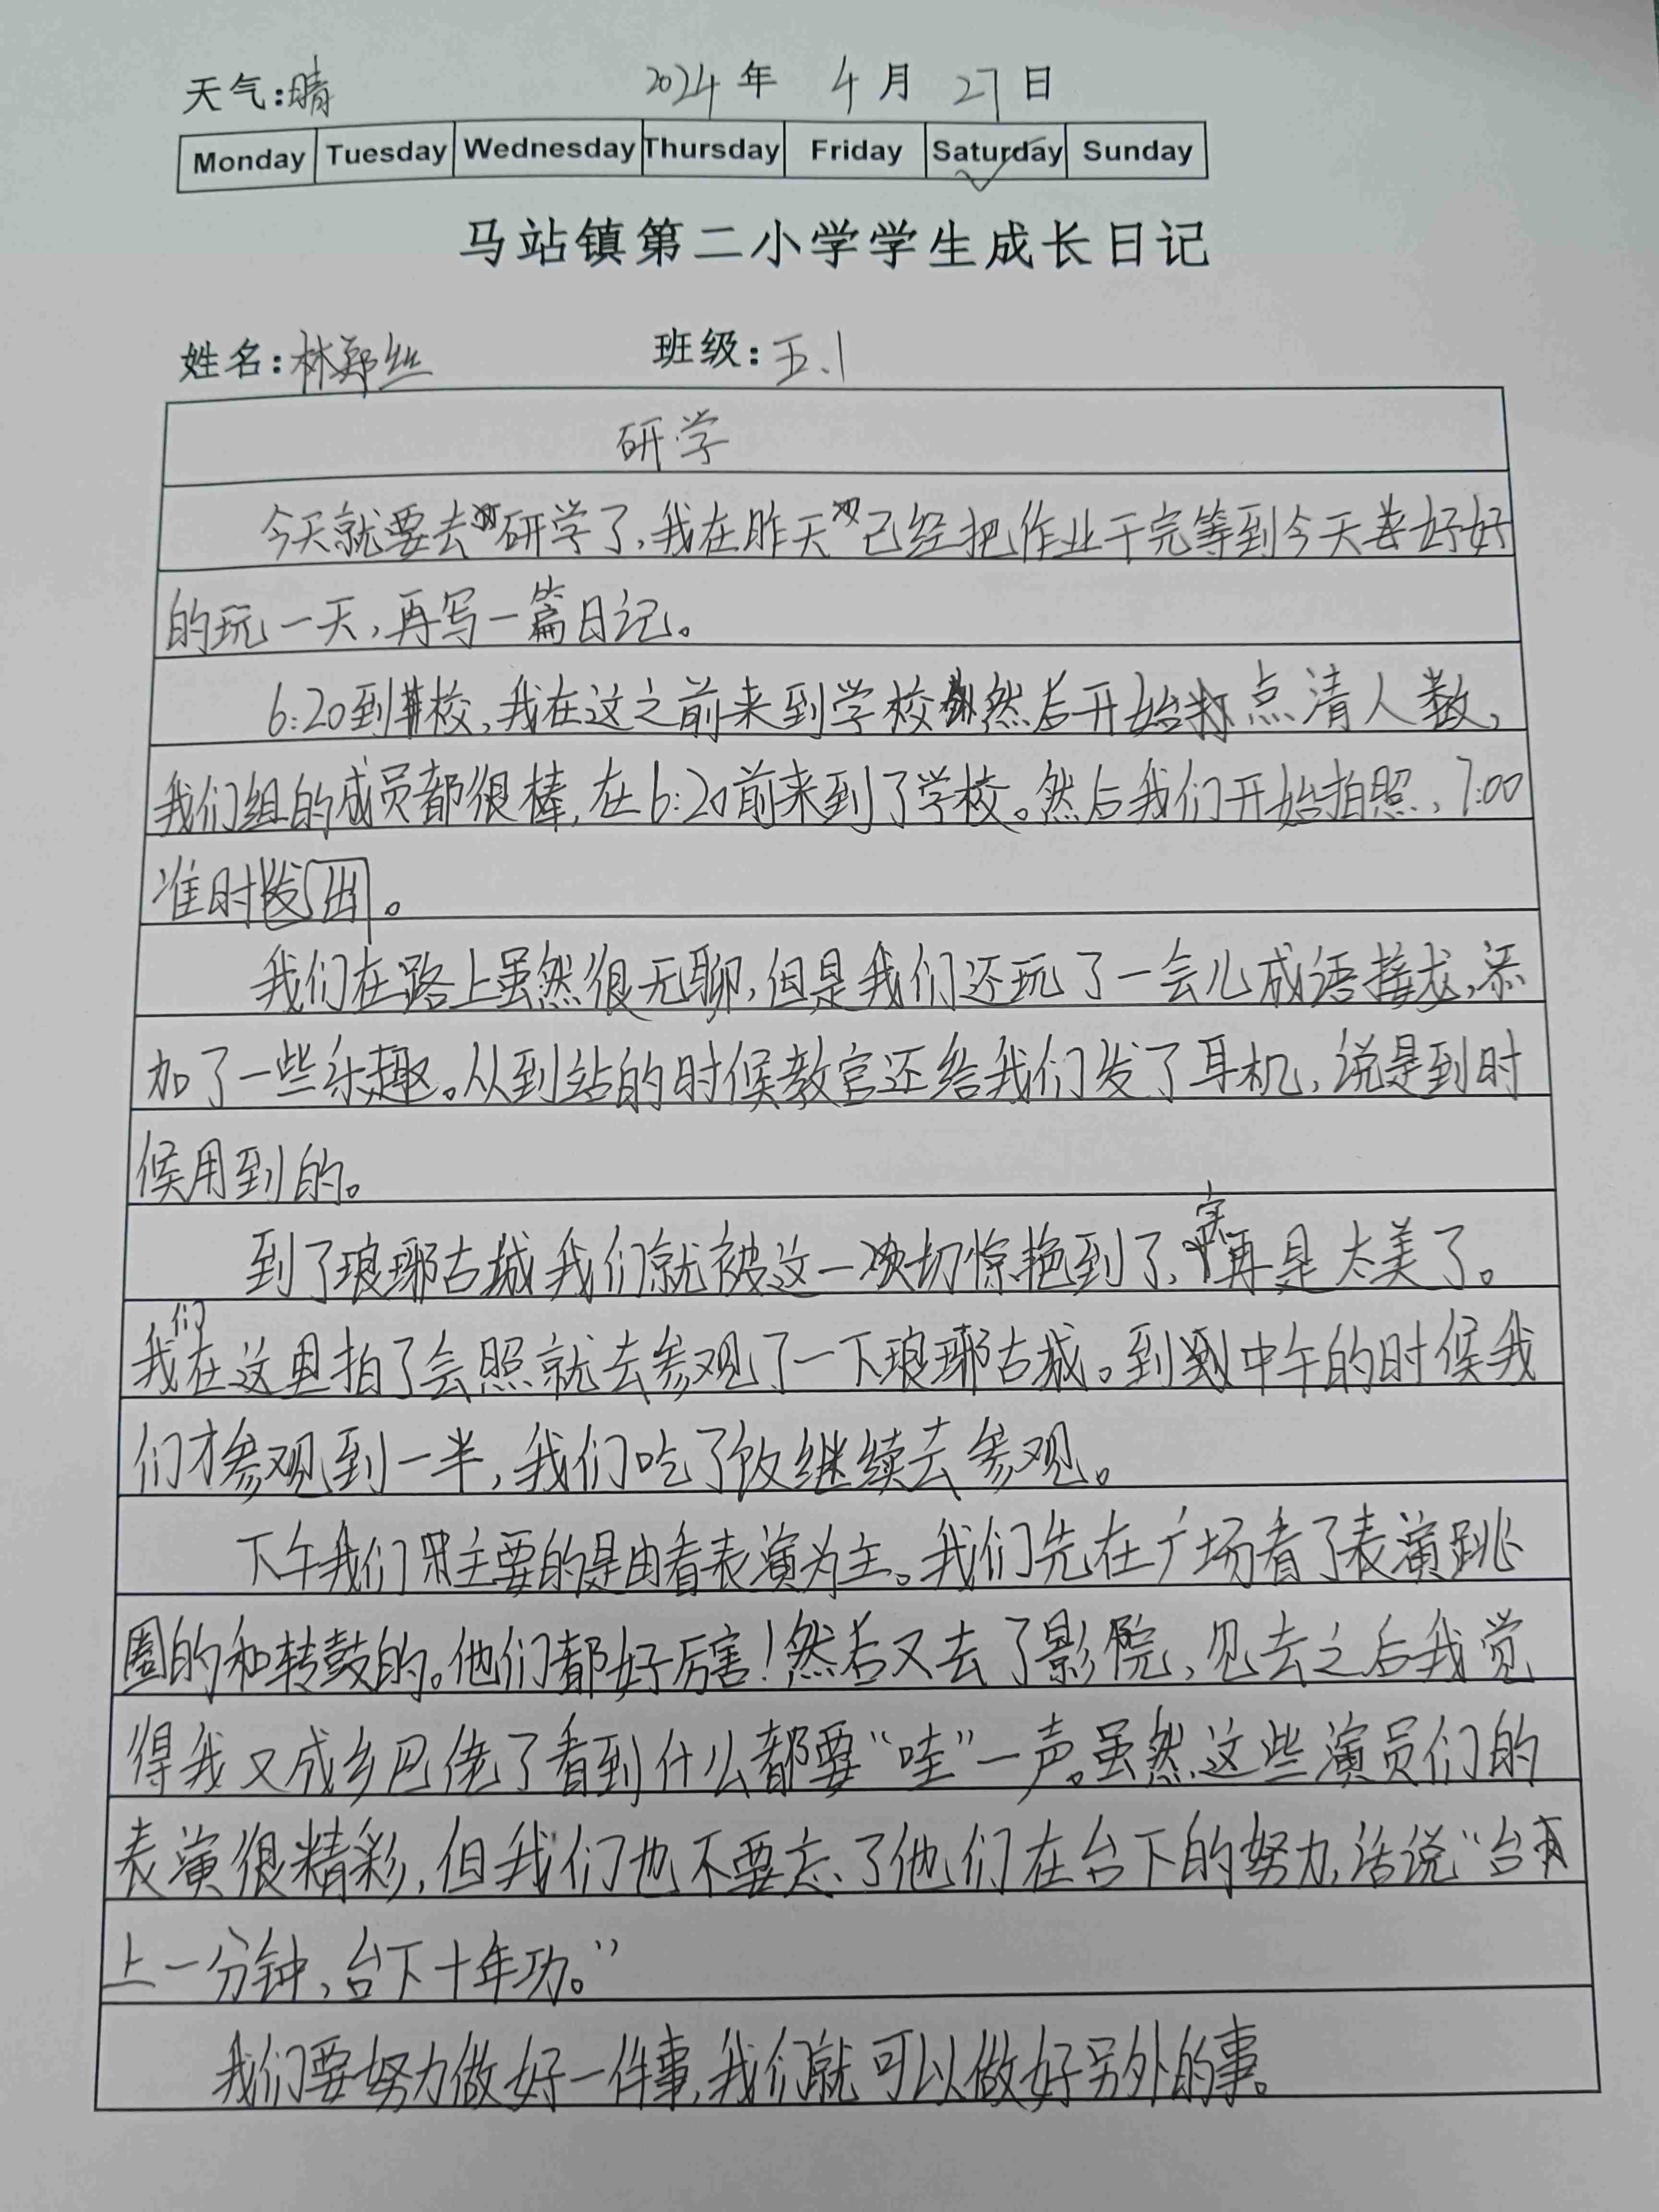 天气:晴 2024年 4月 27日
Monday Tuesday Wednesday Thursday Friday Saturday Sunday
马站镇第二小学学生成长日记
姓名:林郑丝 班级:五.1
研学
今天就要去研学了,我在昨天已经把作业干完等到今天去好好
的玩一天,再写一篇日记。
6:20到校,我在这之前来到学校然后开始点清人数,
我们组的成员都很棒,在6:20前来到了学校。然后我们开始拍照、7:00
准时出发。
我们在路上虽然很无聊,但是我们还玩了一会儿成语接龙,添
加了一些乐趣。从到站的时候教官还给我们发了耳机,说是到时
候用到的。
到了琅琊古城我们就被这一切惊艳到了、实再是太美了。
我们在这里拍了会照就去参观了一下琅琊古城。到中午的时候我
们才参观到一半,我们吃了饭继续去参观。
下午我们主要的是由看表演为主。我们先在广场看了表演跳
圈的和转鼓的。他们都好厉害!然后又去了影院,见去之后我觉
得我又成乡巴佬了看到什么都要“哇”一声。虽然这些演员们的
表演很精彩,但我们也不要忘了他们在台下的努力,话说“台
上一分钟,台下十年功。”
我们要努力做好一件事,我们就可以做好另外的事。